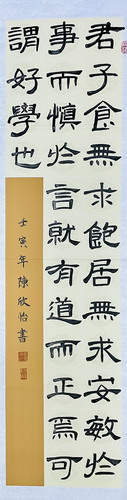 君子食無求飽居無求安敏於
事而慎於言就有道而正焉可
謂好學也
壬寅年陳欣怡書